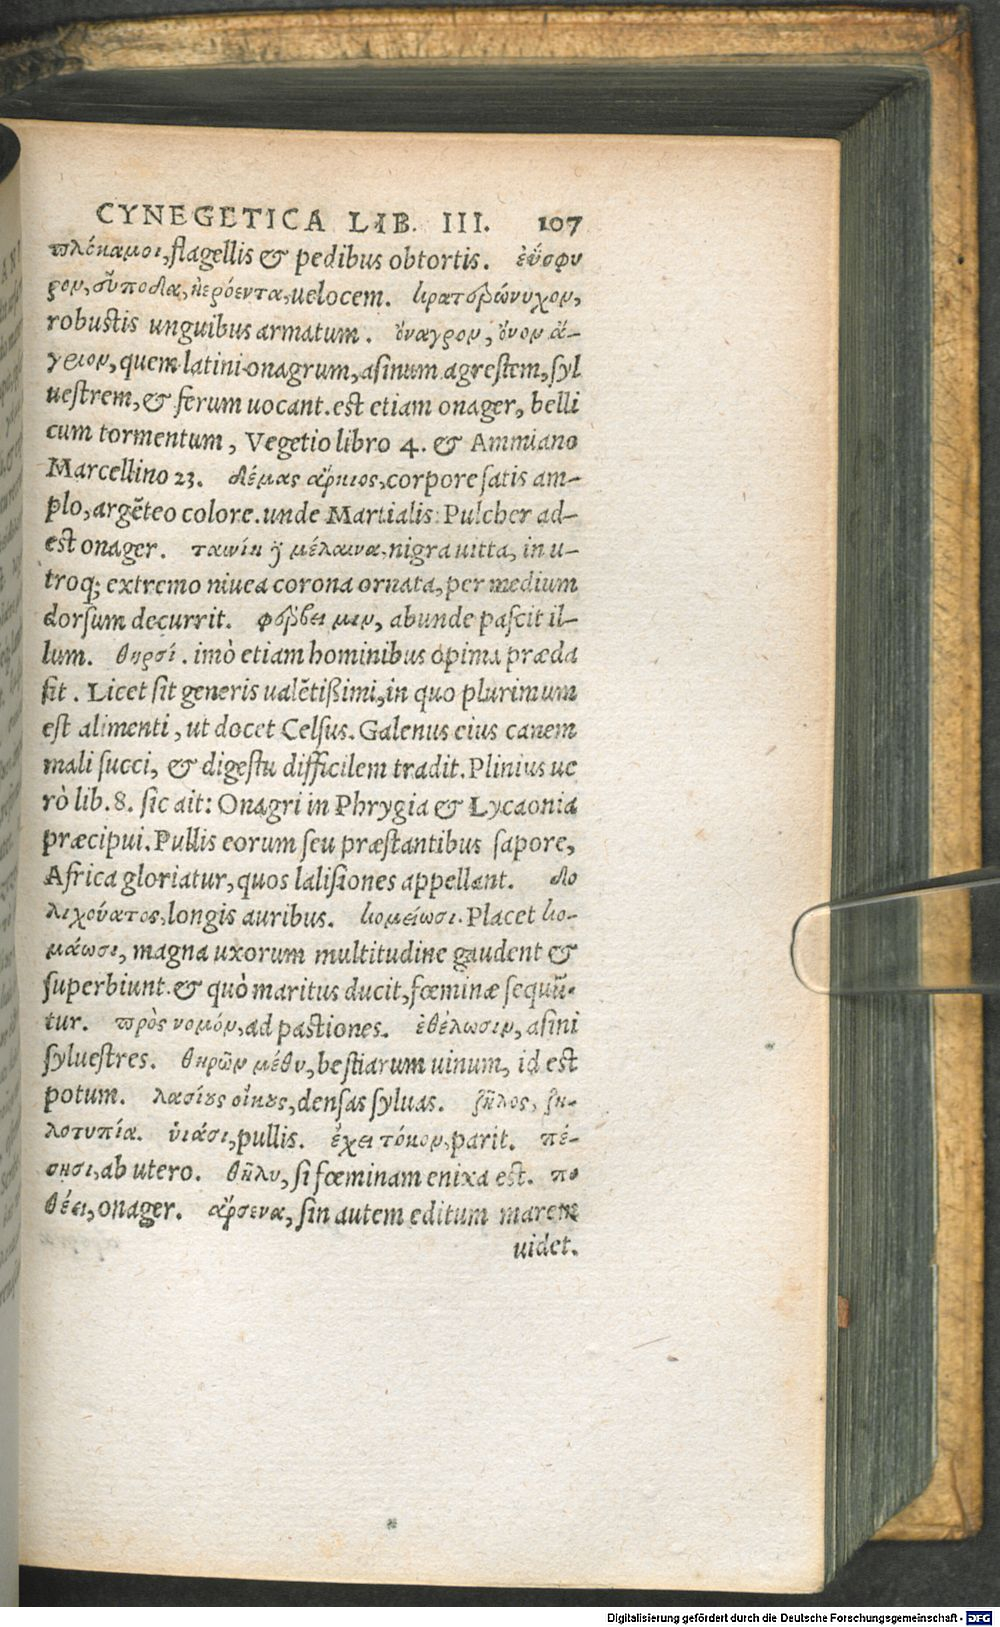 CYNEGETICA LIB. III. 107
πλόκαμοι, flagellis & pedibus obtortis. ἐΰσφυ
ρον, εὔποδα, ἠερόεντα, uelocem. κρατερώνυχον,
robustis unguibus armatum. ὄναγρον, ὄνον ἄ-
γριον, quem latini onagrum, asinum agrestem, syl
uestrem, & ferum uocant. est etiam onager, belli
cum tormentum, Vegetio libro 4. & Ammiano
Marcellino 23. δέμας ἄρκιος, corpore satis am-
plo, argẽteo colore. unde Martialis: Pulcher ad-
est onager. ταινίη ἢ μέλαινα. nigra uitta, in u-
troq; extremo niuea corona ornata, per medium
dorsum decurrit. φέρβει μιν, abunde pascit il-
lum. θηρσί. imò etiam hominibus opima præda
sit. Licet sit generis ualẽtißimi, in quo plurimum
est alimenti, ut docet Celsus. Galenus eius canem
mali succi, & digestu difficilem tradit. Plinius ue
rò lib. 8. sic ait: Onagri in Phrygia & Lycaonia
præcipui. Pullis eorum seu præstantibus sapore,
Africa gloriatur, quos lalisiones appellant. δο
λιχούατος, longis auribus. κομείωσι. Placet κο-
μάωσι, magna uxorum multitudine gaudent &
superbiunt. & quò maritus ducit, fœminæ sequũ-
tur. πρὸς νομόν, ad pastiones. ἐθέλωσιν, asini
syluestres. θηρῶν μέθυ, bestiarum uinum, id est
potum. λασίους οἴκους, densas syluas. ζῆλος, ζη-
λοτυπία. υἱάσι, pullis. ἔχει τόκον, parit. πέ-
σησι, ab utero. θῆλυ, si fœminam enixa est. πο
θέει, onager. ἄρσενα, sin autem editum marem
uidet.
Digitalisierung gefördert durch die Deutsche Forschungsgemeinschaft - DFG